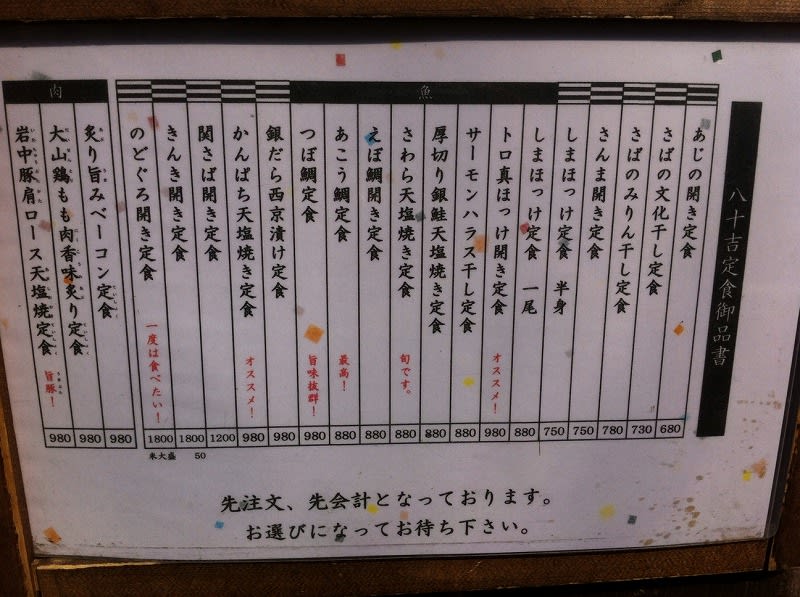 八十吉定食御品書
魚
あじの開き定食 680
さばの文化干し定食 730
さばのみりん干し定食 780
さんま開き定食 750
しまほっけ定食 半身 750
しまほっけ定食 一尾 880
トロ真ほっけ開き定食 オススメ！ 980
サーモンハラス干し定食 880
厚切り銀鮭天塩焼き定食 880
さわら天塩焼き定食 旬です。 880
えぼ鯛開き定食 880
あこう鯛定食 最高！ 880
つぼ鯛定食 旨味抜群！ 980
銀だら西京漬け定食 980
かんぱち天塩焼き定食 オススメ！ 980
関さば開き定食 1200
きんき開き定食 1800
のどぐろ開き定食 一度は食べたい！ 1800
肉
炙り旨みベーコン定食 980
大山鶏もも肉香味炙り定食 980
岩中豚肩ロース天塩焼定食 旨豚！ 980
米大盛 50
先注文、先会計となっております。
お選びになってお待ち下さい。